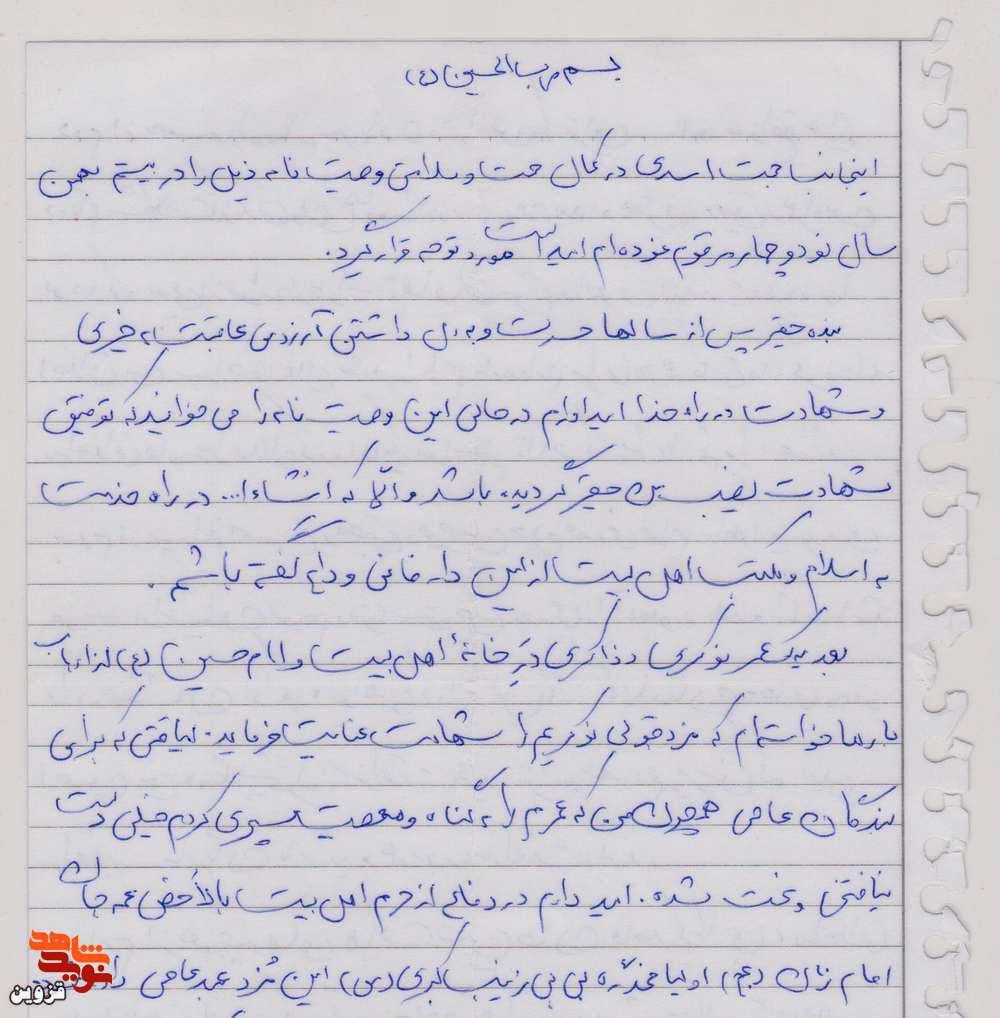 بسم رب الحسین (ع)
اینجانب حجت اسدی در کمال صحت و سلامتی وصیت نامه ذیل را در بیستم بهمن
سال نود و چهار مرقوم نموده ام امید است مورد توجه قرار گیرد.
بنده حقیر پس از سالها حسرت و به دل داشتن آرزوی عاقبت به خیری
و شهادت در راه خدا امیدوارم در حالی این وصیت نامه را می خوانید که توفیق
شهادت نصیب من حقیر گردیده باشد و الا که انشاءا... در راه خدمت
به اسلام و مکتب اهل بیت از این دار فانی وداع گفته باشم.
بعد یک عمر نوکری و ذاکری در خانهٔ اهل بیت و امام حسین (ع) از ارباب
بارها خواسته ام که مزد نوکریم را شهادت عنایت فرماید. لیاقتی که برای
بندگان عاصی همچون من که عمرم را به گناه و معصیت سپری کردم خیلی دست
نیافتنی و سخت شده. امید دارم در دفاع از حرم اهل بیت بالأخص عمه جان
امام زمان (عج) اولیا مخدّره بی بی زینب کبری (س) این مُزد عبد عاصی داده
شاهد
نوید
قزوین